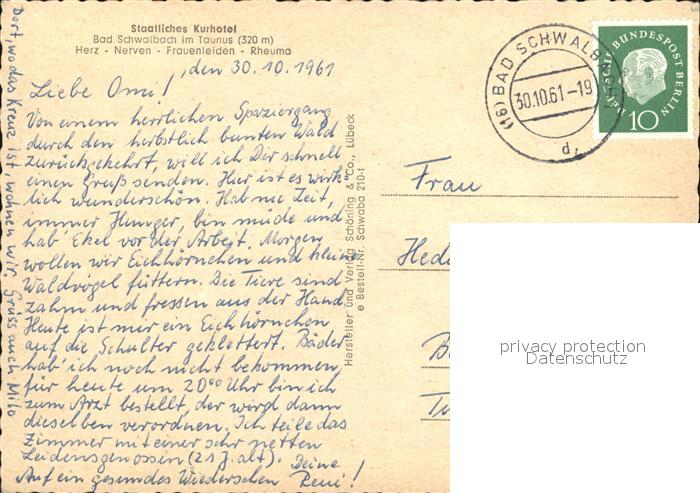 Staatliches Kurhotel
Bad Schwalbach im Taunus (320 m)
Herz - Nerven - Frauenleiden - Rheuma
, den 30.10.1961
Liebe Omi!
Von einem herrlichen Spaziergang
durch den herbstlich bunten Wald
zurückgekehrt, will ich Dir schnell
einen Gruß senden. Hier ist es wirk-
lich wunderschön. Hab nie Zeit,
immer Hunger, bin müde und
hab' Ekel vor der Arbeit. Morgen
wollen wir Eichhörnchen und
Waldvögel füttern. Die Tiere sind
zahm und fressen aus der Hand.
Heute ist mir ein Eichhörnchen
auf die Schulter geklettert. Bäder
hab' ich noch nicht bekommen,
für heute um 20⁰⁰ Uhr bin ich
zum Arzt bestellt, der wird dann
dieselben verordnen. Ich teile das
Zimmer mit einer sehr netten
Leidensgenossin (21 J. alt). Deine
Auf ein gesundes Wiedersehen Reni!
Dort, wo das Kreuz ist wohnen wir. Grüss auch Milo
Hersteller und Verlag Schöning & Co., Lübeck
e Bestell-Nr. Schwaba 210-f
(16) BAD SCHWALBACH
30.10.61-19
d
DEUTSCHE BUNDESPOST BERLIN
10
Frau
Hed
B
T
privacy protection
Datenschutz